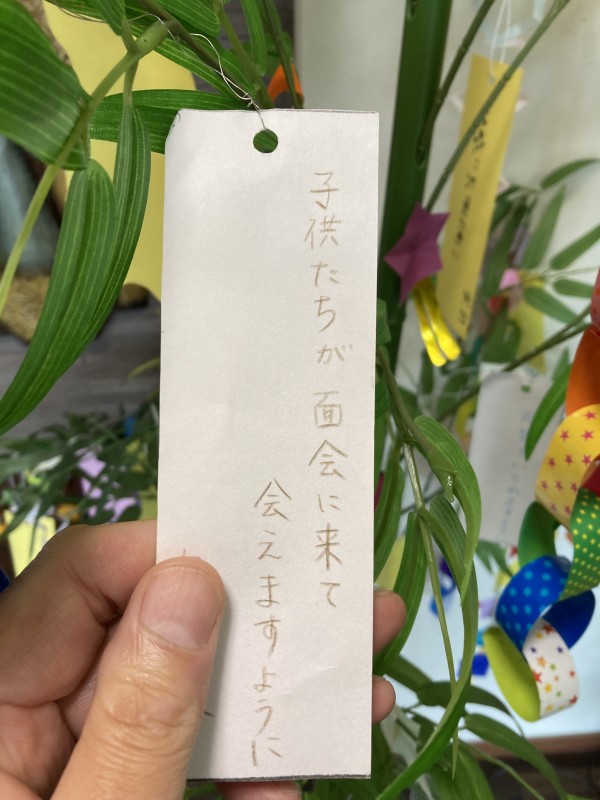 子供たちが面会に来て
会えますように